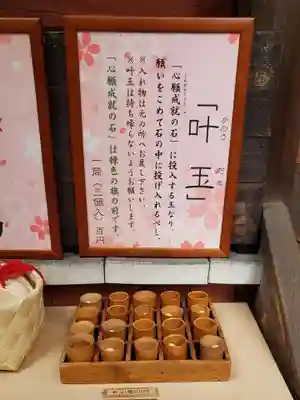 「叶玉」
かのう だま
「心願成就の石」に投入する玉なり、
願いをこめて石の中に投げ入れるべし。
※入れ物は元の所へお戻し下さい。
※叶玉は持ち帰らないようお願いします。
「心願成就の石」は樺色の旗の前です。
一筒（三個入）百円